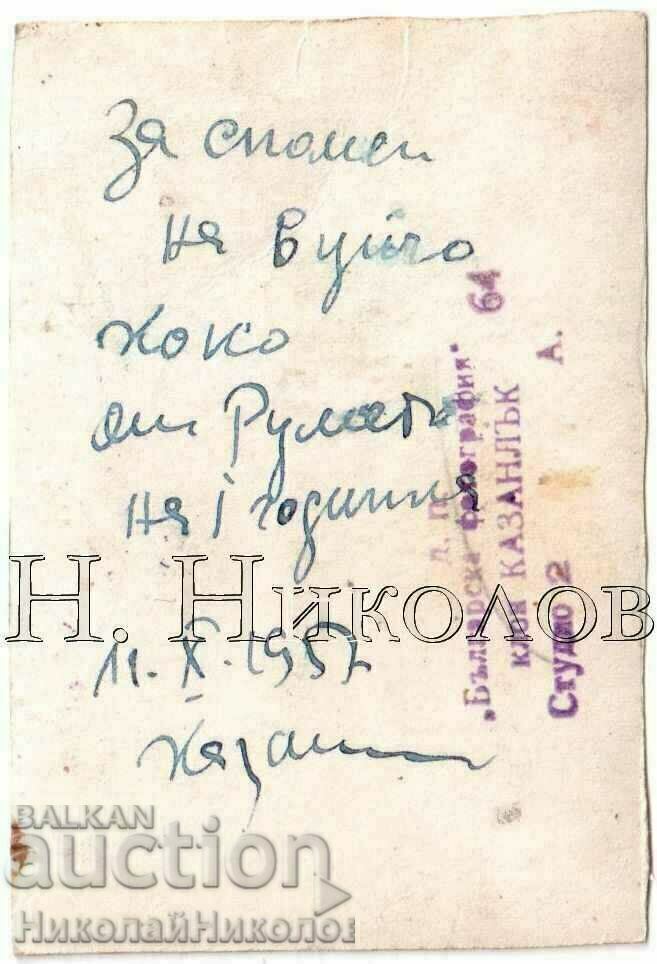 За спомен
на вуйчо
Коко
от Румяна
на 1 годинка
11. X. 1957
Казан
Д. П.
"Българска фотография"
клон КАЗАНЛЪК
Студио 2 А.
64
Н. Николов
BALKAN
auction
НиколайНиколов